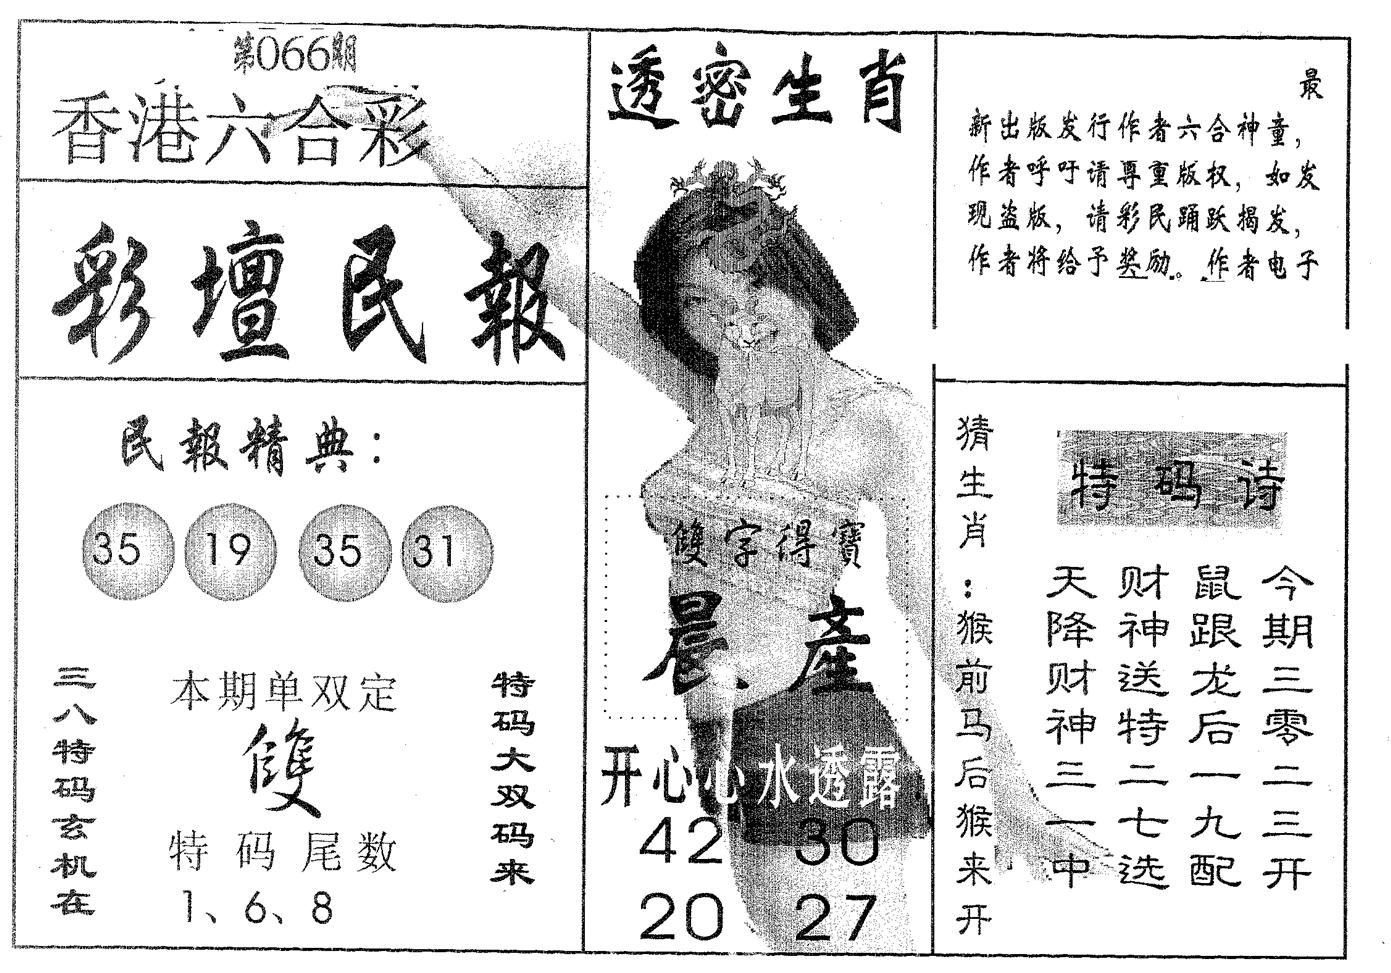 第066期
香港六合彩
彩壇民報
民報精典：
35 19 35 31
三八特码玄机在
本期单双定
雙
特码尾数
1、6、8
特码大双码来
透密生肖
雙字得寶
晨 產
开心心水透露
42 30
20 27
最
新出版发行作者六合神童，
作者呼吁请尊重版权，如发
现盗版，请彩民踊跃揭发，
作者将给予奖励。作者电子
猜生肖：猴前马后猴来开
特码诗
今期三零二三开
鼠跟龙后一九配
财神送特二七选
天降财神三一中